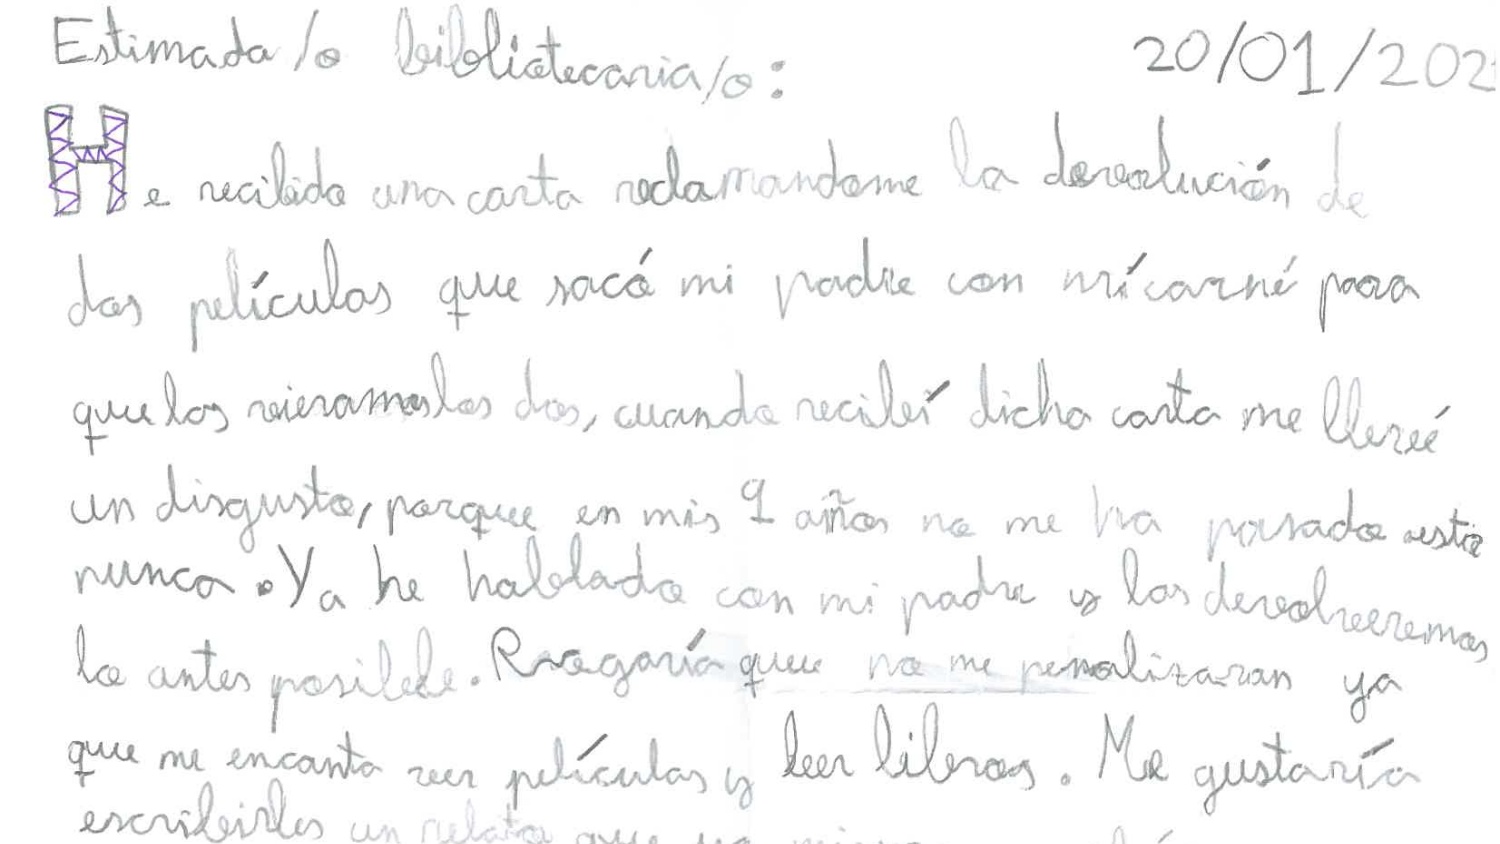 Estimada/o bibliotecaria/o: 20/01/202
He recibido una carta reclamandome la devolución de
dos películas que sacó mi padre con mi carné para
que los vieramos los dos, cuando recibí dicha carta me lleveé
un disgusto, porque en mis 9 años no me ha pasado esto
nunca. Ya he hablado con mi padre y los devolveremos
lo antes posible. Rogaría que no me penalizaran ya
que me encanta ver películas y leer libros. Me gustaría
escribirles un relato que yo